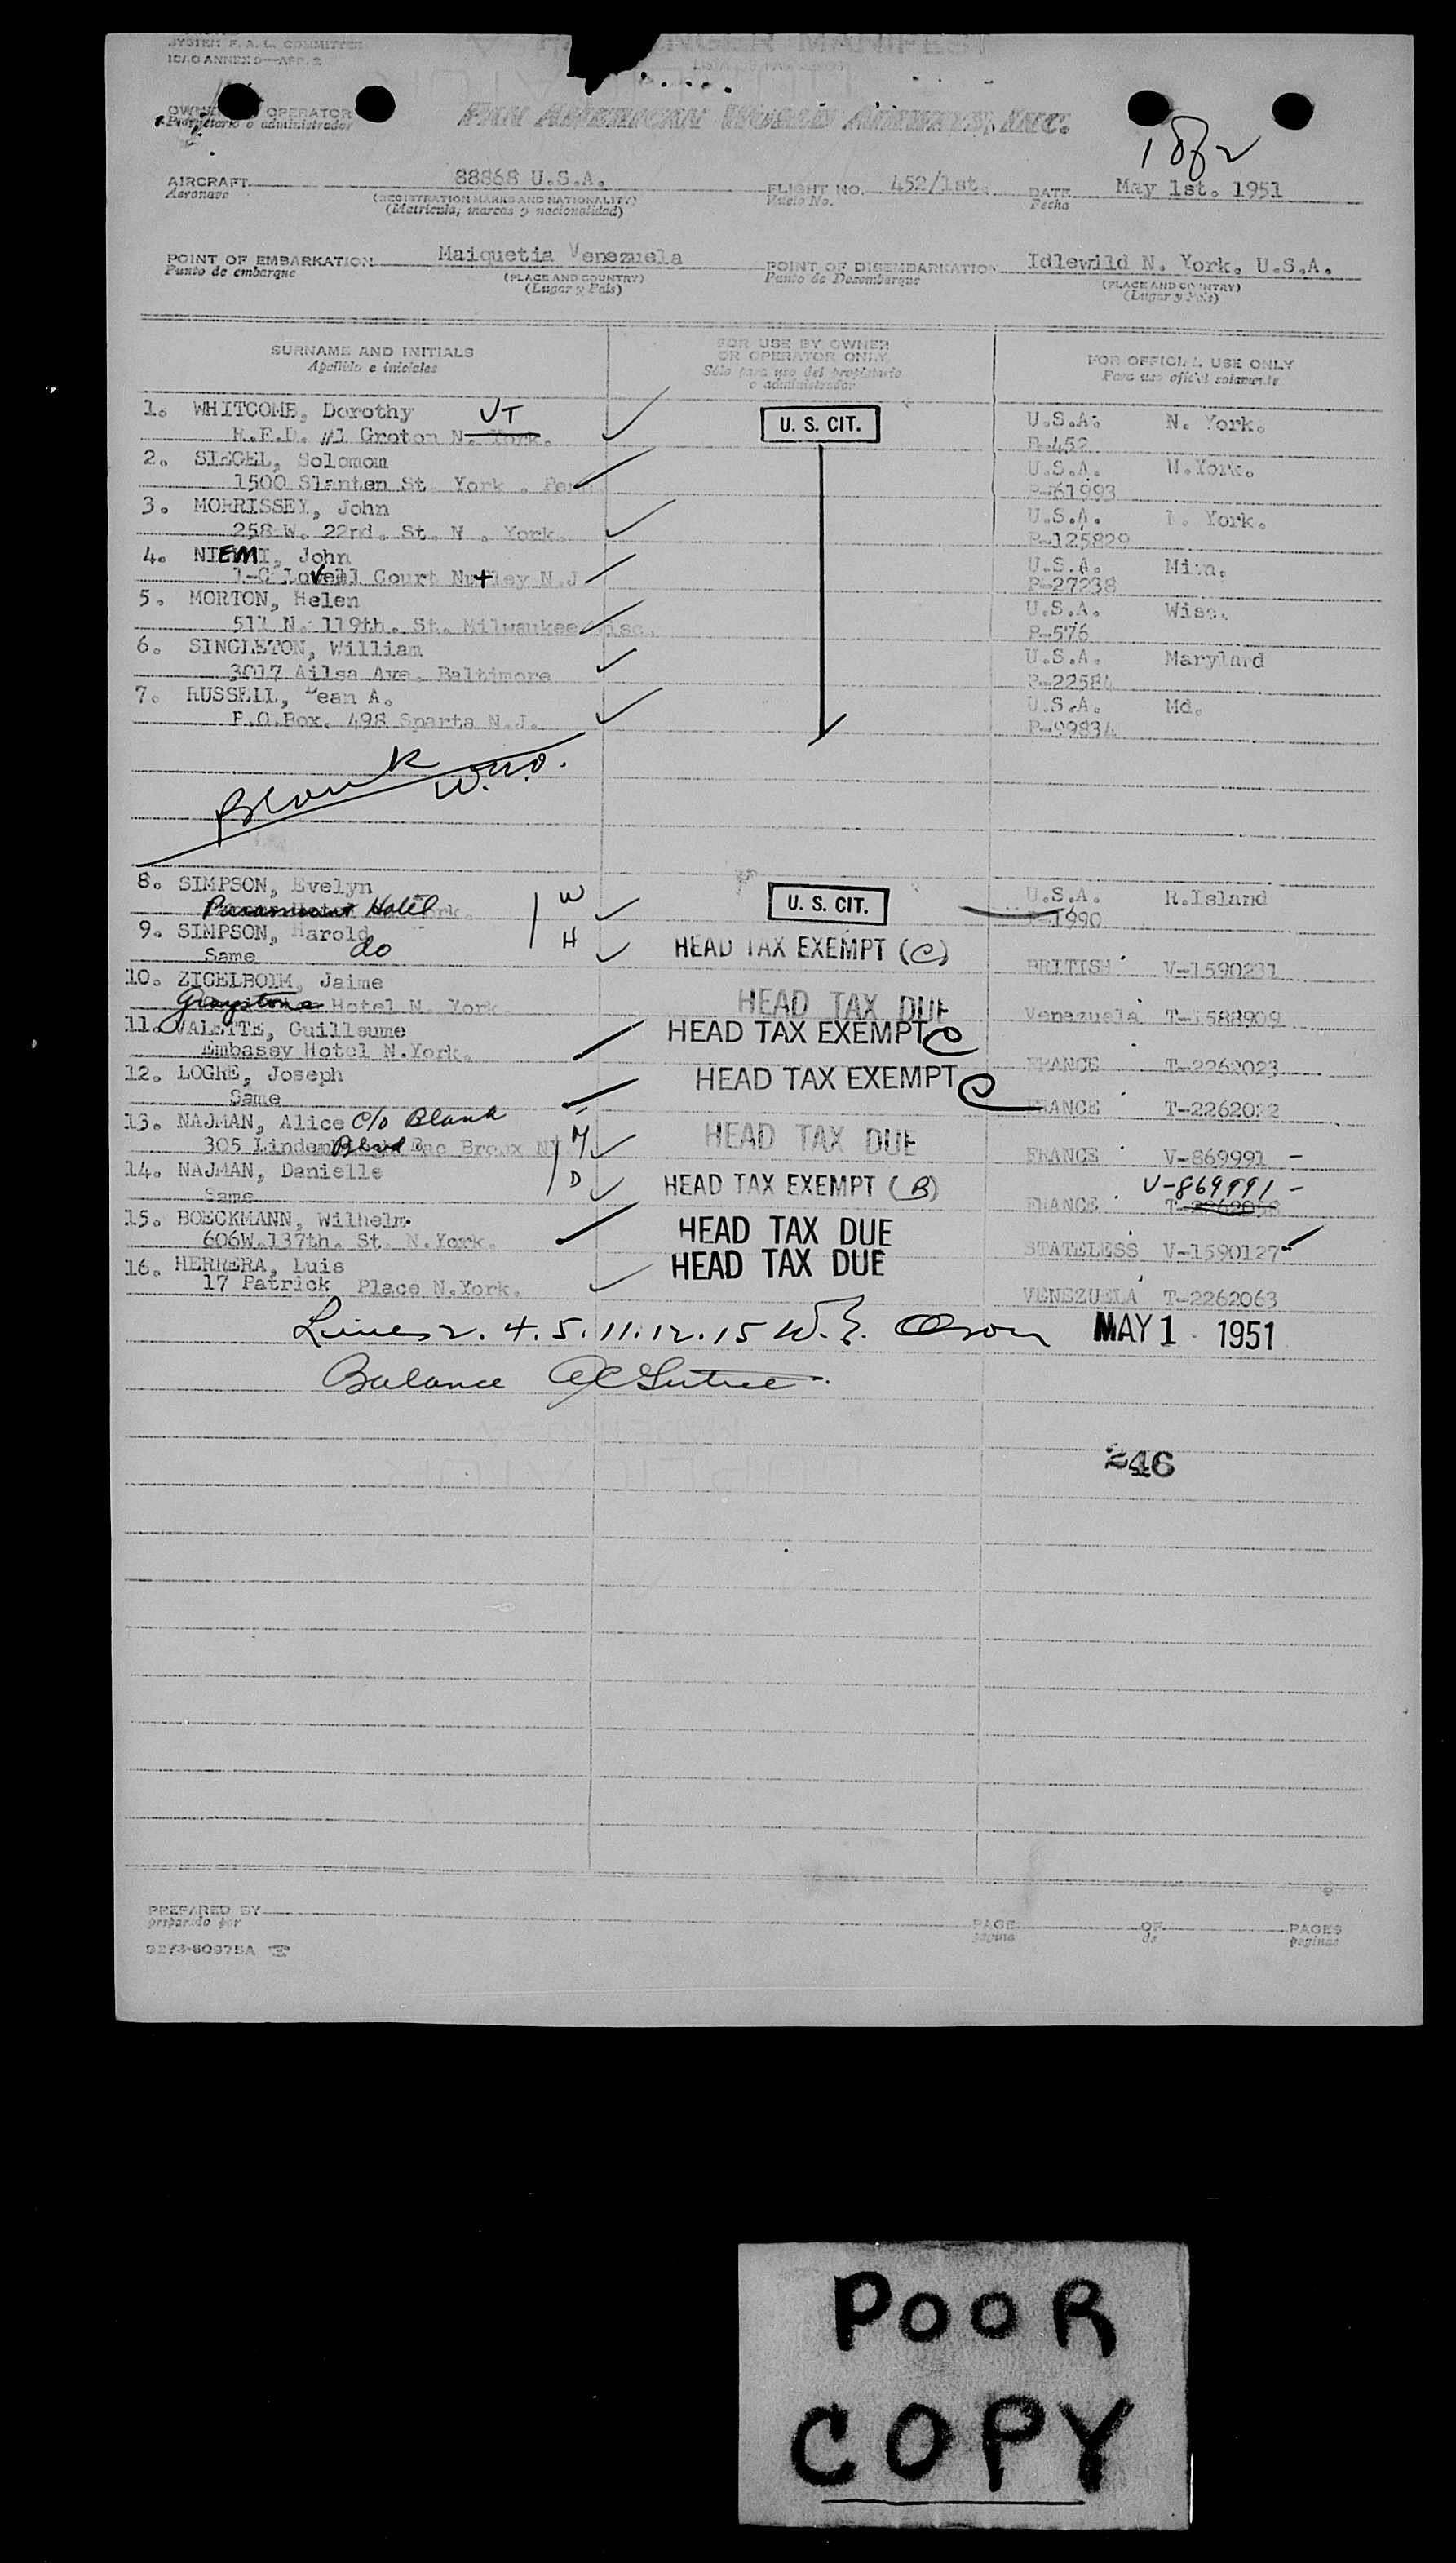 SYSTEM F. A. L. COMMITTEE
PASSENGER MANIFEST
ICAO ANNEX 9—APP. 2
OPERATOR
Proprietario o administrador
PAN AMERICAN WORLD AIRWAYS, INC.
1882
AIRCRAFT 88868 U.S.A. FLIGHT NO. 452/1st. DATE May 1st. 1951
Aeronave (REGISTRATION MARKS AND NATIONALITY) Vuelo No. Fecha
(Matricula, marcas y nacionalidad)
POINT OF EMBARKATION Maiquetia Venezuela POINT OF DISEMBARKATION Idlewild N. York. U.S.A.
Punto de embarque (PLACE AND COUNTRY) Punto de Desembarque (PLACE AND COUNTRY)
(Lugar y Pais) (Lugar y Pais)
SURNAME AND INITIALS FOR USE BY OWNER OR OPERATOR ONLY FOR OFFICIAL USE ONLY
Apellido e iniciales Sólo para uso del propietario o administrador Para uso oficial solamente
1. WHITCOMB, Dorothy VT U. S. CIT. U.S.A. N. York.
R.F.D. #1 Groton N. York. P-452
2. SIEGEL, Solomon U.S.A. N.York.
1500 Slanten St. York . Penn. P-61993
3. MORRISSEY, John U.S.A. N. York.
258 W. 22nd. St. N . York. P-125829
4. NIEMI, John U.S.A. Minn.
1-C Lovell Court Nutley N.J P-27238
5. MORTON, Helen U.S.A. Wisc.
511 N. 119th. St. Milwaukee Wisc. P-576
6. SINGLETON, William U.S.A. Maryland
3017 Ailsa Ave. Baltimore P-22584
7. RUSSELL, Dean A. U.S.A. Md.
P.O.Box. 498 Sparta N.J. P-99834
Blank
8. SIMPSON, Evelyn U. S. CIT. U.S.A. R.Island
Paramount Hotel W P-1990
9. SIMPSON, Harold H HEAD TAX EXEMPT (C)
Same do BRITISH V-1590231
10. ZIGELBOIM, Jaime HEAD TAX DUE
Graystone Hotel N. York. Venezuela T-1588909
11. VALETTE, Guillaume HEAD TAX EXEMPT C
Embassy Hotel N.York. FRANCE T-2262023
12. LOGRE, Joseph HEAD TAX EXEMPT C
Same FRANCE T-2262022
13. NAJMAN, Alice C/o Blank HEAD TAX DUE
305 Linden Blvd M FRANCE V-869991 -
14. NAJMAN, Danielle D HEAD TAX EXEMPT (B) V-869991 -
Same FRANCE
15. BOECKMANN, Wilhelm HEAD TAX DUE
606W.137th. St. N.York. STATELESS V-1590127
16. HERRERA, Luis HEAD TAX DUE
17 Patrick Place N.York. VENEZUELA T-2262063
Lines 2. 4. 5. 11. 12. 15 W. E. Olson MAY 1 1951
Balance
246
PREPARED BY PAGE OF PAGES
preparado por pagina de paginas
POOR
COPY